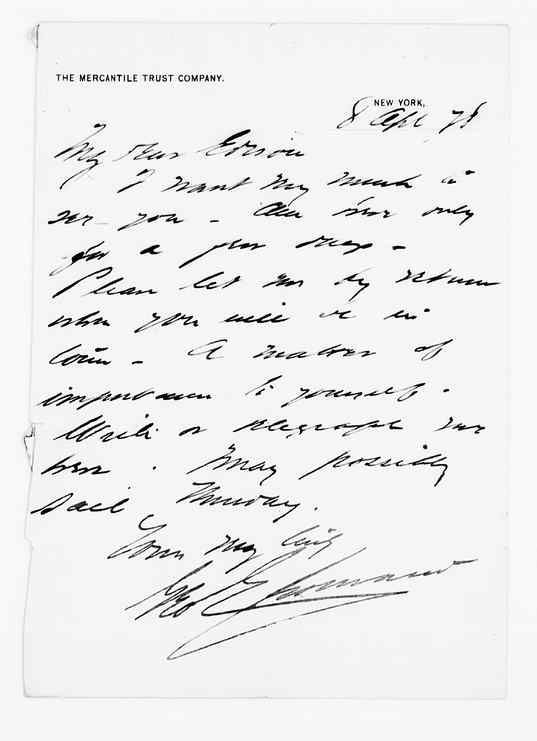 THE MERCANTILE TRUST COMPANY.
NEW YORK,
8 Apl 78
My Dear Edison
I want very much to
see you - Am here only
for a few days -
Please let me by return
when you will be in
town - A matter of
importance to yourself.
Write or telegraph me
here. May possibly
sail Thursday.
Yours very truly
Geo E